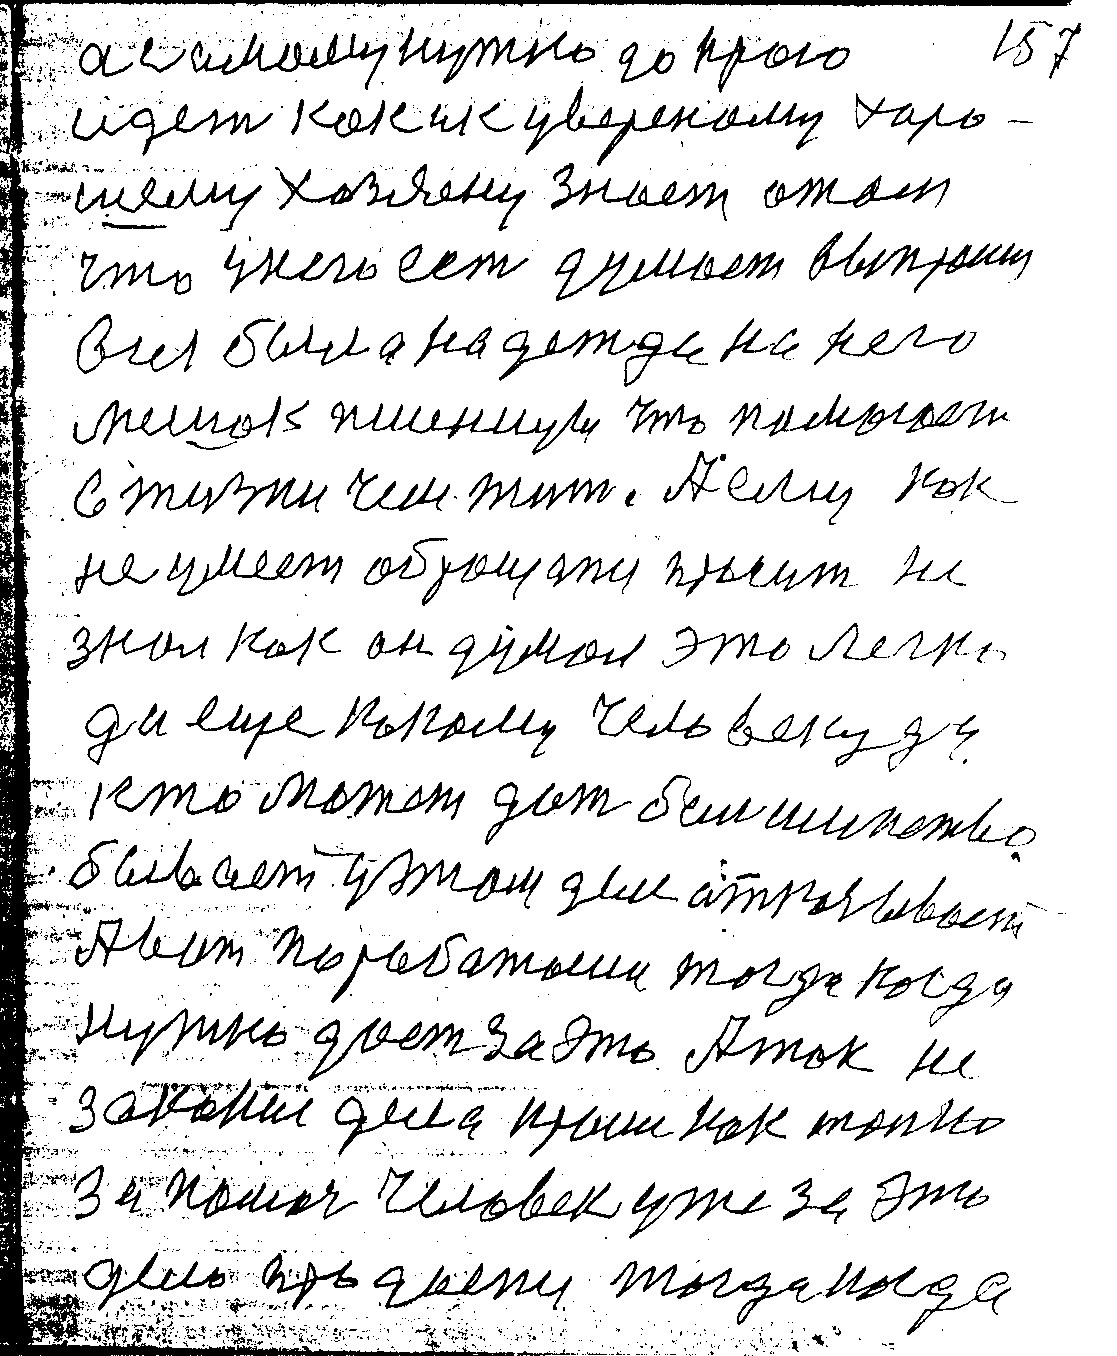 157
а самому нужно до краю
идет как ик увереному харо-
шему хозяену знает отом
что у него ест думает выпрошу
Вся была надежда на него
мешок пшеницы что помогает
в жизни чем жит. А ему как
не умеет обращатц просит не
знал как он думал это легко
да еще какому человеку да
кто может дат белшинство
бывает у этом деле откачывает
А вот поработаеш тогда когда
нужно дает за это А так не
закониш дела прош как только
За помоч человек уже за это
дело продаетц тогда когда